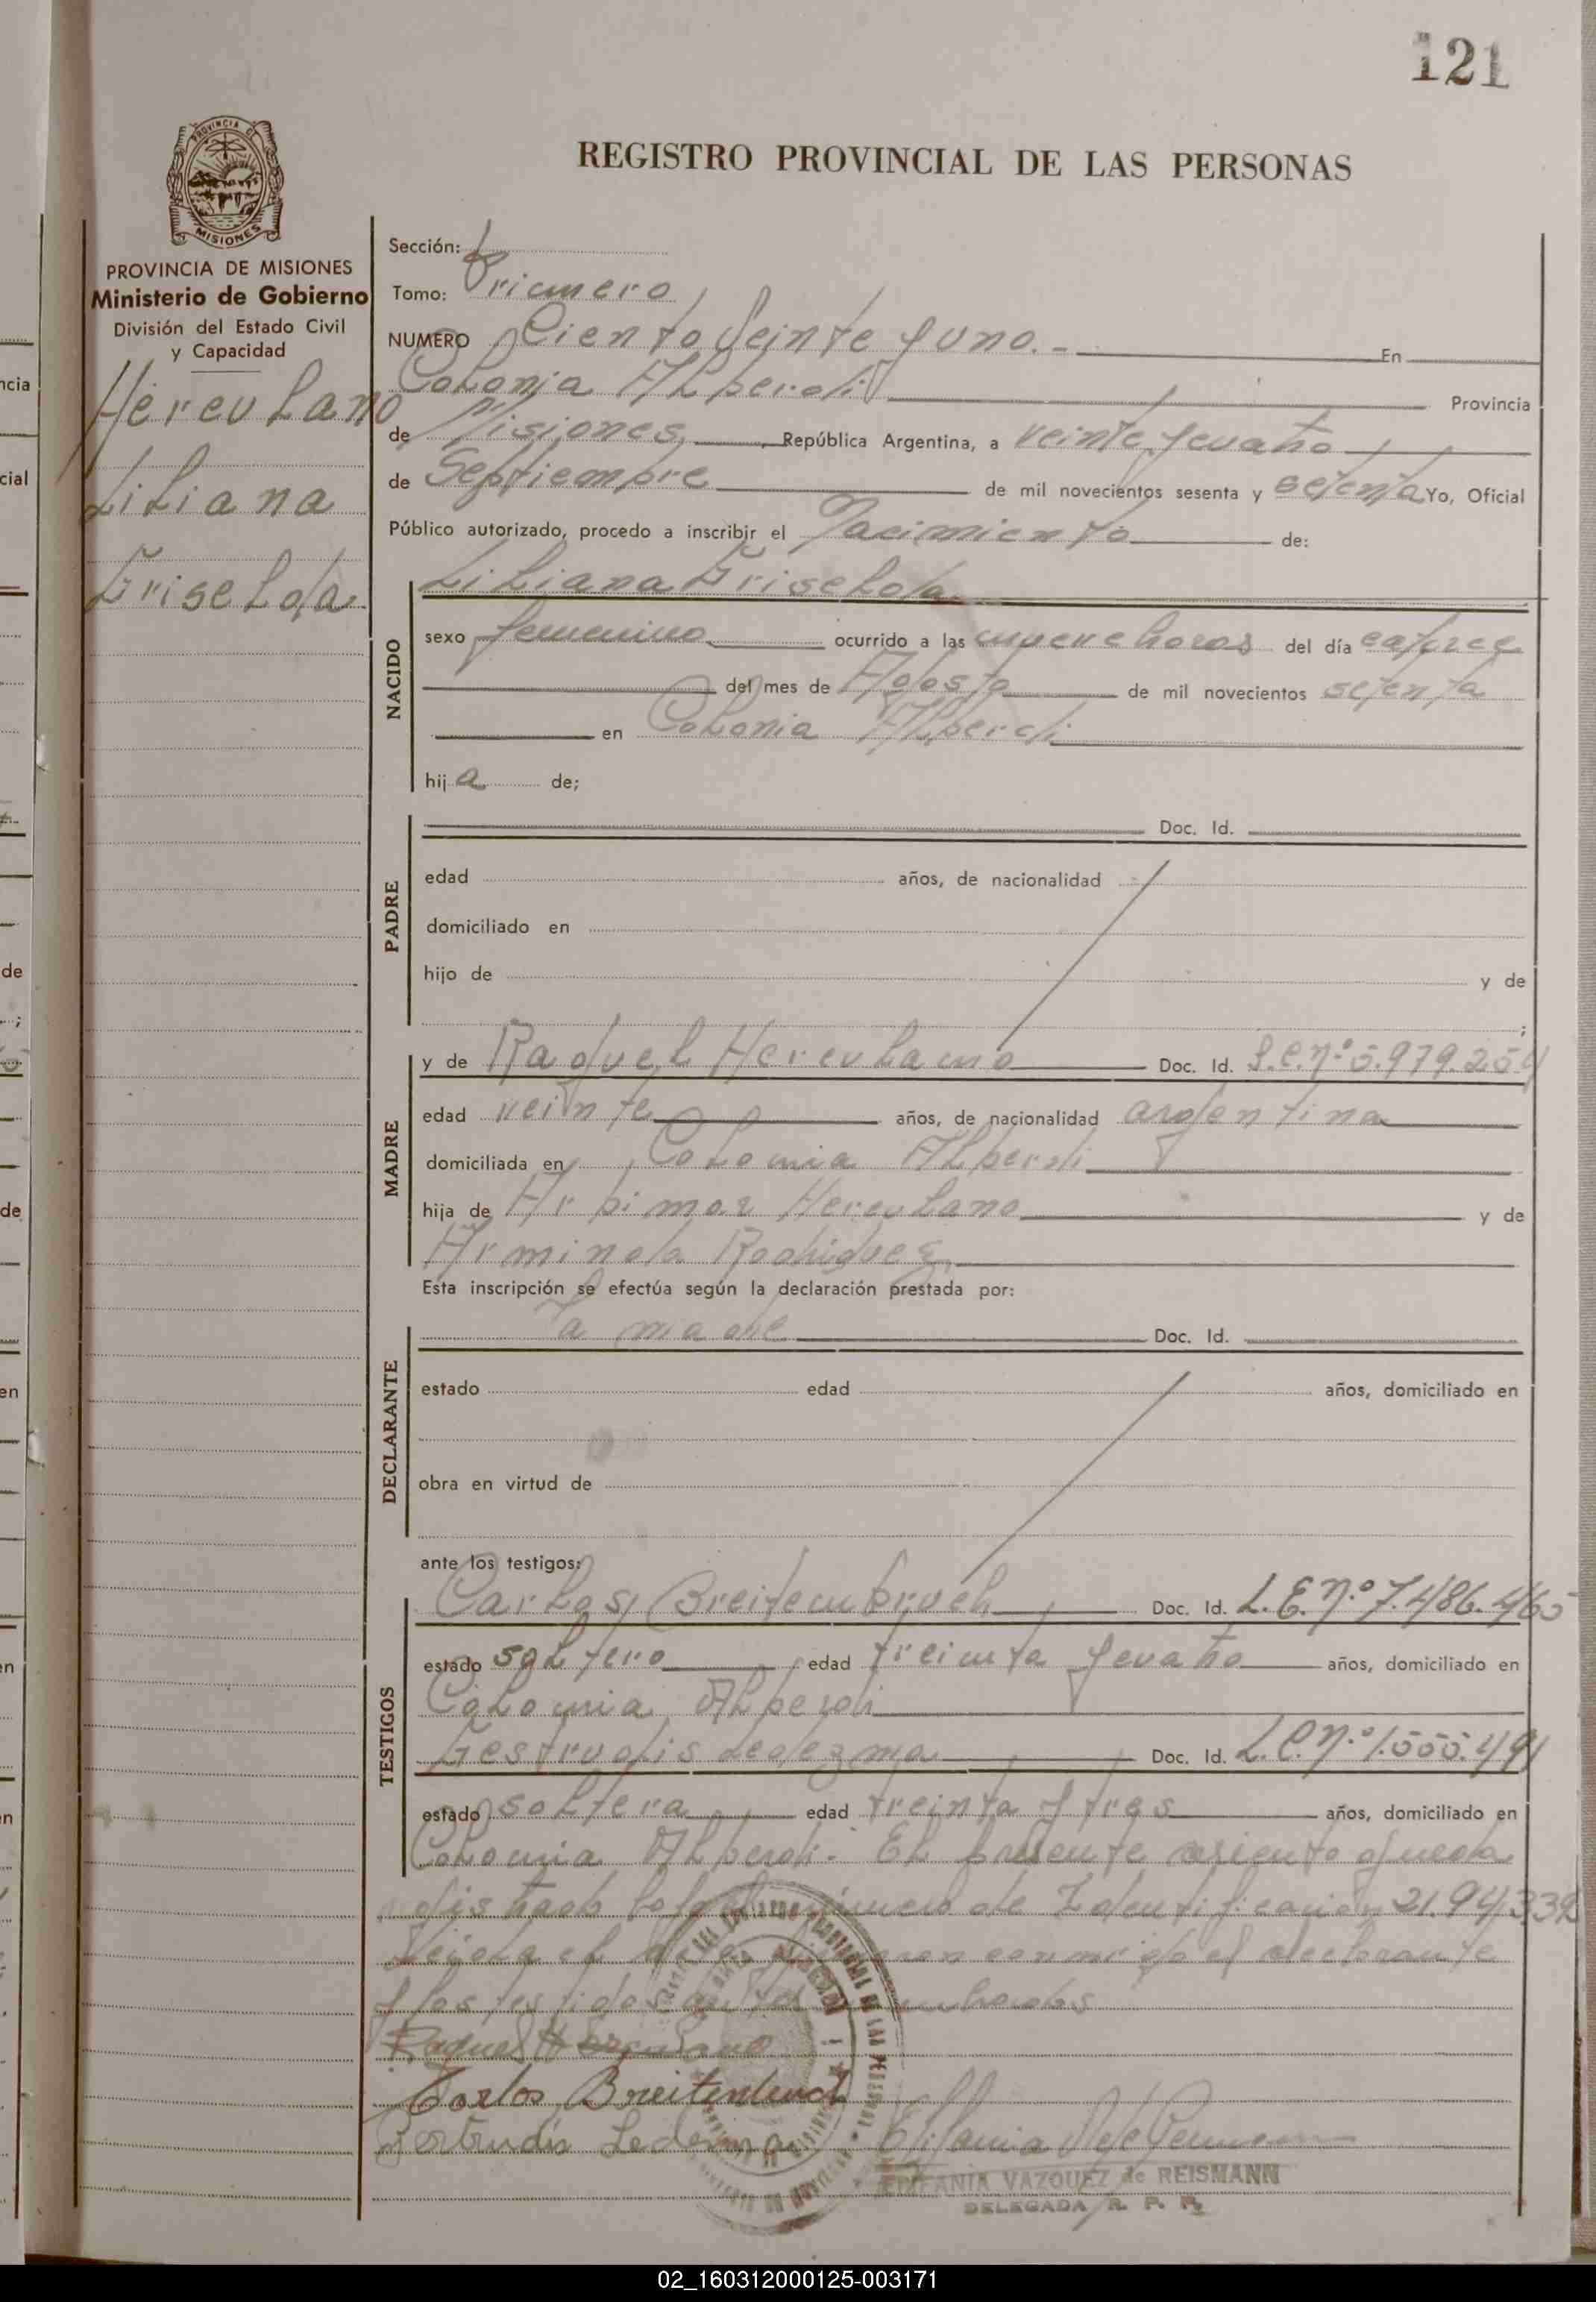 121
REGISTRO PROVINCIAL DE LAS PERSONAS
PROVINCIA DE MISIONES
Ministerio de Gobierno
División del Estado Civil
y Capacidad
Herculano
Liliana
Griselda
Sección:
Tomo: Primero
NUMERO Ciento Veinte y uno.- En
Colonia Alberdi Provincia
de Misiones, República Argentina, a veinte y cuatro
de Septiembre de mil novecientos sesenta y setenta Yo, Oficial
Público autorizado, procedo a inscribir el Nacimiento de:
NACIDO
Liliana Griselda
sexo femenino ocurrido a las nueve horas del día catorce
del mes de Agosto de mil novecientos setenta
en Colonia Alberdi
hij a de;
PADRE
Doc. Id.
edad años, de nacionalidad
domiciliado en
hijo de y de
;
MADRE
y de Raquel Herculano Doc. Id. L.C.nº 5.979.254
edad veinte años, de nacionalidad argentina
domiciliada en Colonia Alberdi
hija de Herculano y de
Arminda Rodriguez
Esta inscripción se efectúa según la declaración prestada por:
DECLARANTE
La madre Doc. Id.
estado edad años, domiciliado en
obra en virtud de
ante los testigos:
TESTIGOS
Carlos Breitembruch Doc. Id. L.E.nº 7.486.465
estado soltero edad treinta y cuatro años, domiciliado en
Colonia Alberdi
Gestrudis Ledezma Doc. Id. L.C.nº 1.555.491
estado soltera edad treinta y tres años, domiciliado en
Colonia Alberdi. El presente asiento queda
de Identificación 21.94.332
Leida el acta conmigo el declarante
y los testigos antes
Raquel Herculano
Carlos Breitenbruch
Gertrudis Ledezma
EPIFANIA VAZQUEZ de REISMANN
DELEGADA R. P. P.
02_160312000125-003171